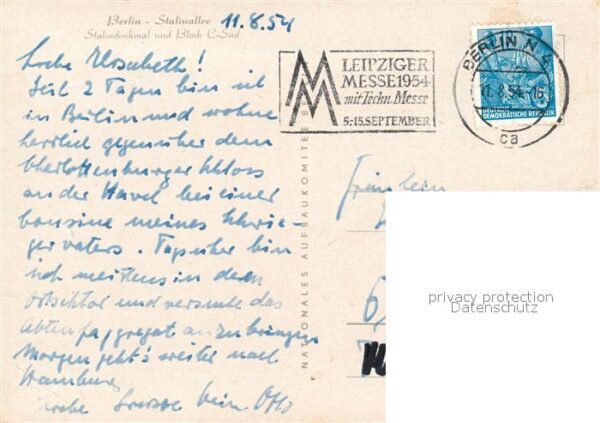 Berlin - Stalinallee
Stalindenkmal und Block C-Süd
11.8.54
Liebe Elisabeth!
Seit 2 Tagen bin ich
in Berlin und wohne
herrlich gegenüber dem
Charlottenburger Schloss
an der Havel bei einer
Cousine meines Schwie-
gervaters. Tagsüber bin
ich meistens in dem
Ostsektor und versuche das
anzubringen
Morgen geht's weiter nach
Hamburg
Liebe Grüsse Dein Otto
NATIONALES AUFBAUKOMITEE
MM
LEIPZIGER
MESSE 1954
mit Techn. Messe
5.-15. SEPTEMBER
BERLIN N 4
11.8.54
ca
DEMOKRATISCHE REPUBLIK
Fräulein
privacy protection
Datenschutz